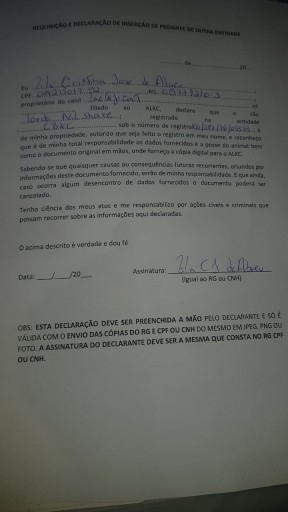 REQUISIÇÃO E DECLARAÇÃO DE INSERÇÃO DE PEDIGREE DE OUTRA ENTIDADE
de de 20
Eu Zila Cristina Jose de Abreu
CPF RG
proprietário do canil el
filiado ao ALKC, declaro que o cão
registrado na entidade
CBKC, sob o número de registro , é
de minha propriedade, autorizo que seja feito o registro em meu nome, e reconheço
que é de minha total responsabilidade os dados fornecidos e a posse do animal bem
como o documento original em mãos, onde forneço a cópia digital para o ALKC.
Sabendo-se que quaisquer causas ou consequências futuras recorrentes, oriundos por
informações deste documento fornecido, serão de minha responsabilidade. E que ainda,
caso ocorra algum desencontro de dados fornecidos o documento poderá ser
cancelado.
Tenho ciência dos meus atos e me responsabilizo por ações cíveis e criminais que
possam recorrer sobre as informações aqui declaradas.
O acima descrito é verdade e dou fé
Data: ___/___/20__ Assinatura: Zila C J de Abreu
(Igual ao RG ou CNH)
OBS: ESTA DECLARAÇÃO DEVE SER PREENCHIDA A MÃO PELO DECLARANTE E SÓ É
VÁLIDA COM O ENVIO DAS CÓPIAS DO RG E CPF OU CNH DO MESMO EM JPEG, PNG OU
FOTO. A ASSINATURA DO DECLARANTE DEVE SER A MESMA QUE CONSTA NO RG CPF
OU CNH.